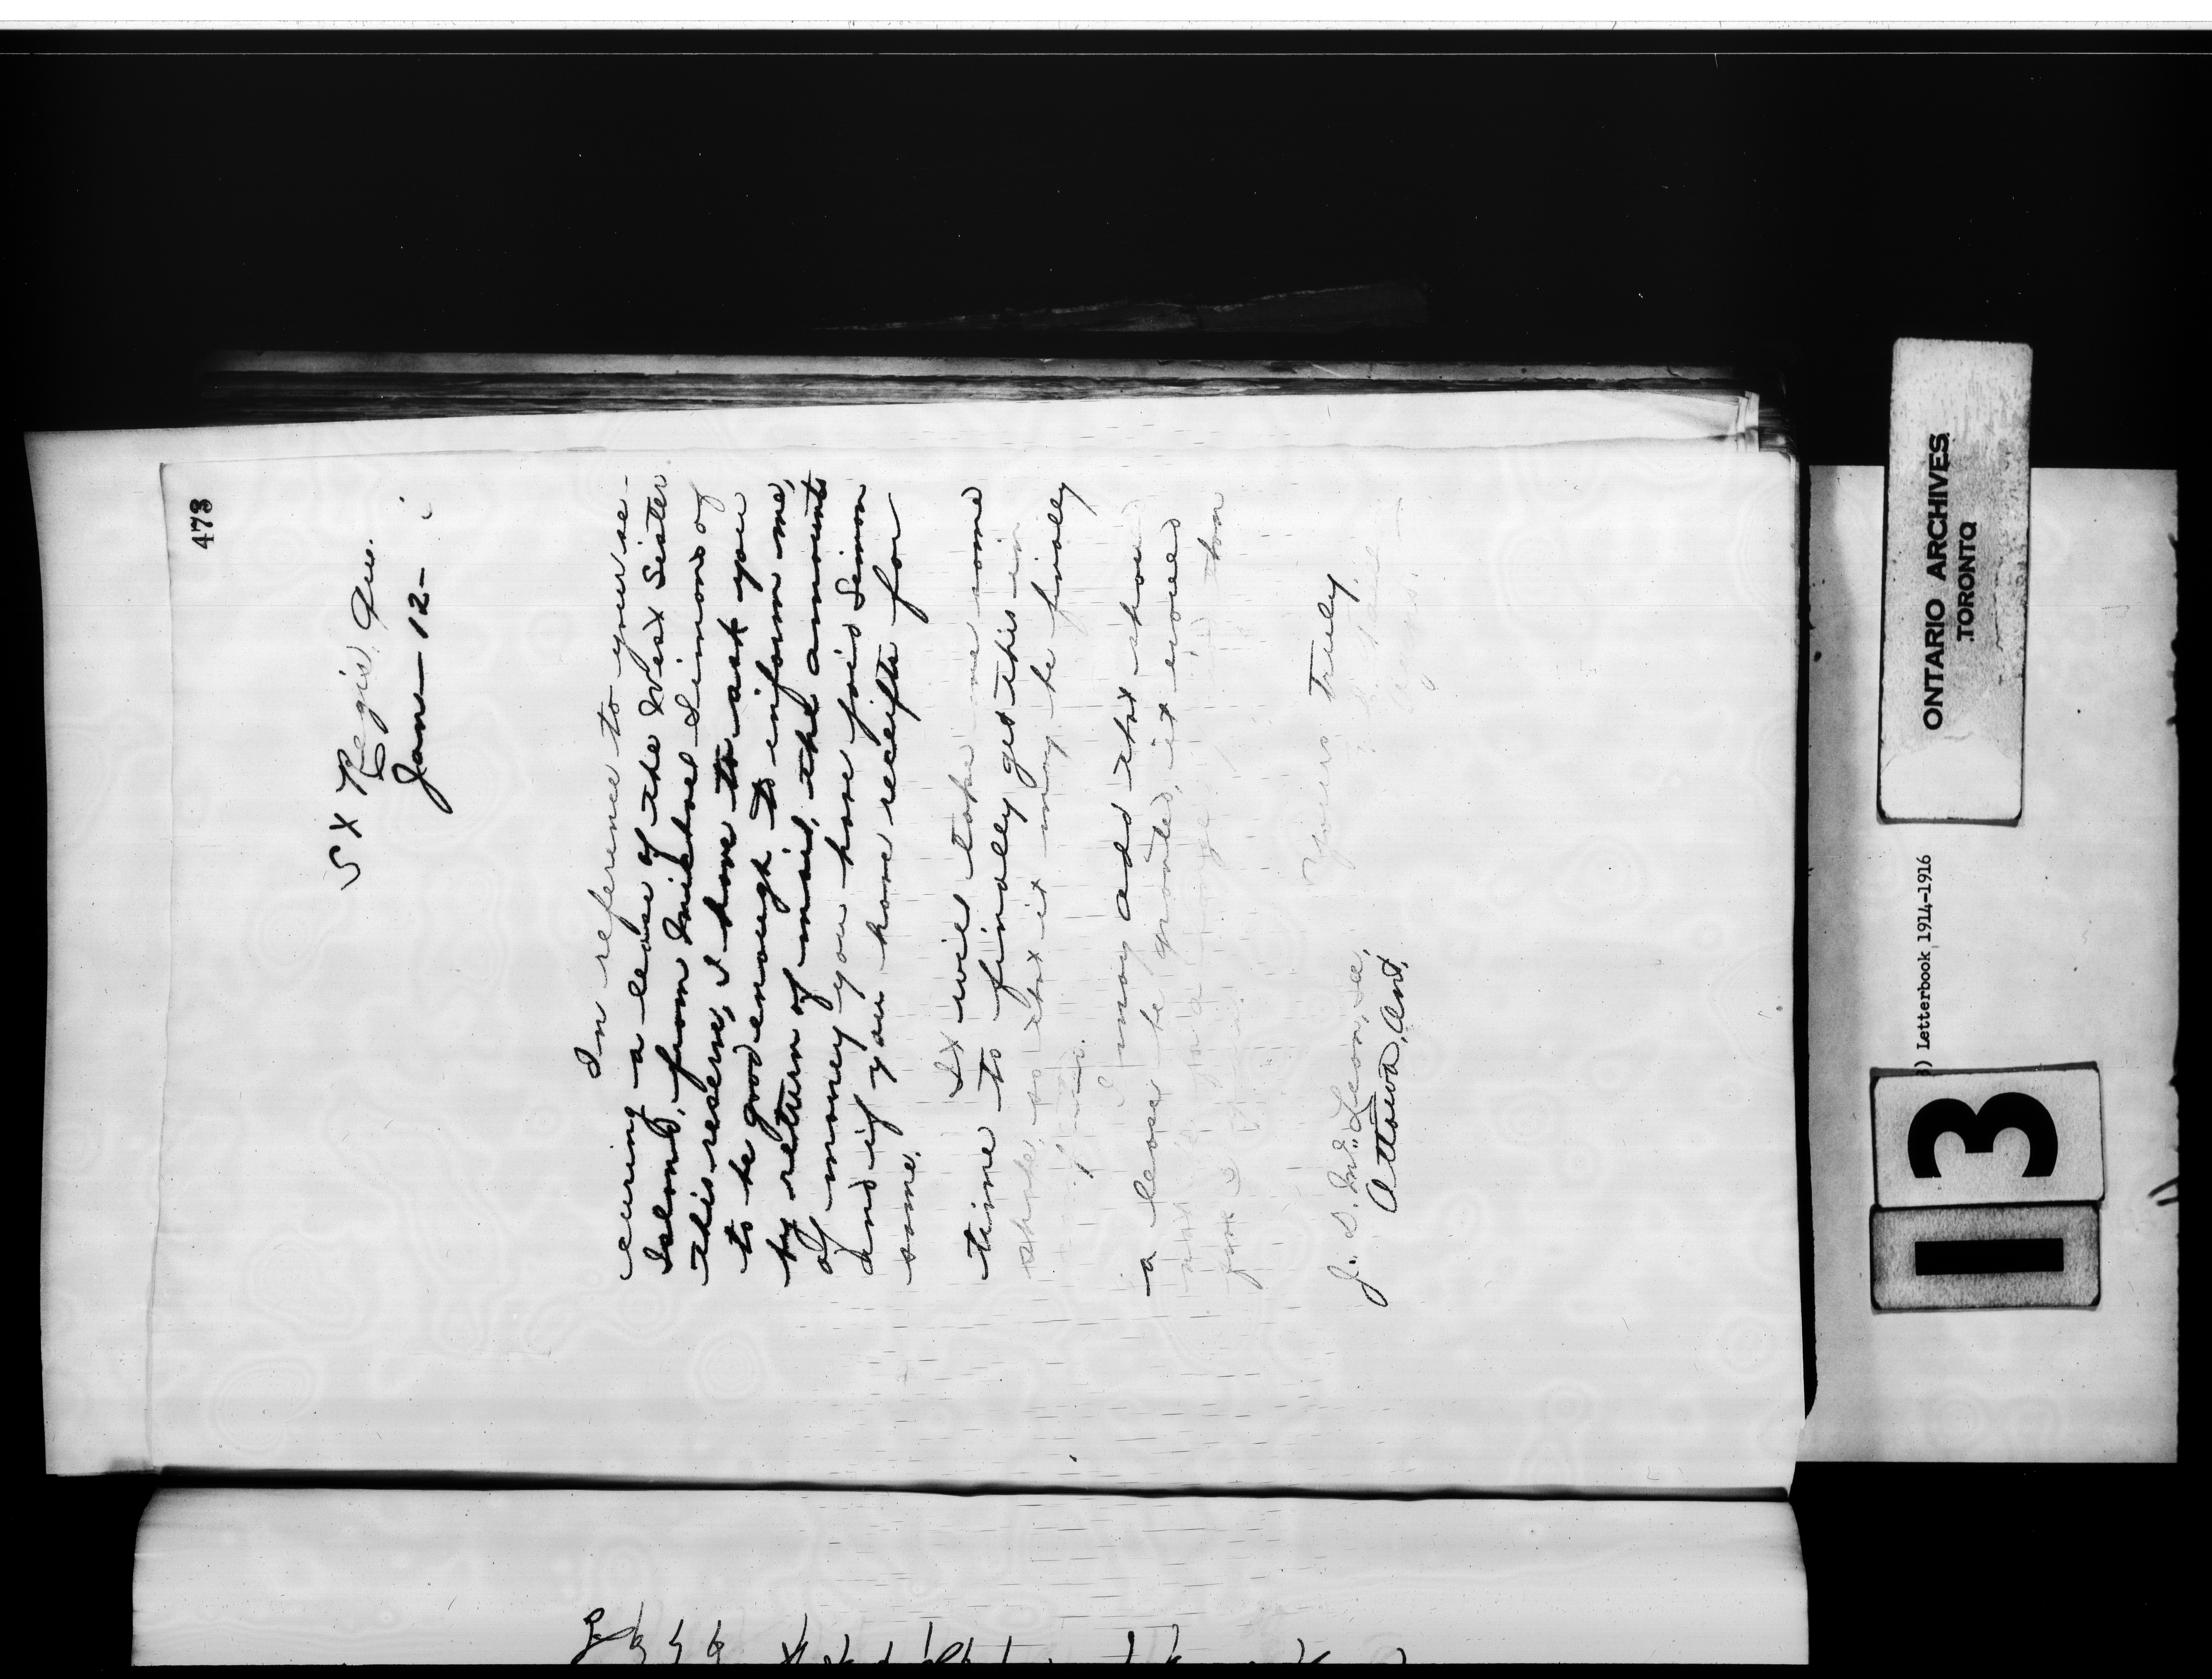 473
St Regis. Que.
Jan- 12-
In reference to your se-
curing a lease of the West Sister
Island, from Mitchel Simons of
this reserve, I have to ask you
to be good enough to inform me,
by return of mail, the amounts
of money you have paid Simon
and if you have receipts for
same.
It will take me some
time to finally get this in
shape, so that it may be finally
I may add that should
a lease be granted, it
Yours truly
J. D. McLean, Sec,
Ottawa, Ont.
ONTARIO ARCHIVES
TORONTO
) Letterbook 1914-1916
13